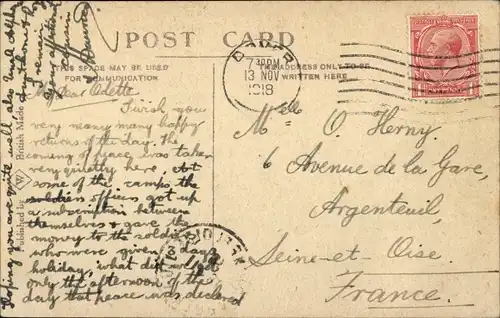 POST CARD
THIS SPACE MAY BE USED
FOR COMMUNICATION
THE ADDRESS ONLY TO BE
WRITTEN HERE
DOVER
7 30PM
13 NOV
1918
My dear Odette
I wish you
very many many happy
returns of the day. The
coming of peace was taken
very quietly here, At
some of the camps the
soldiers officers got up
a subscription between
themselves & gave the
money to the soldiers
who were given 3 days
holiday, what did we get
only the afternoon of the
day that peace was declared
Hoping you are quite well, also
I remain
your affection
cousin
Melle O. Herny
6 Avenue de la Gare,
Argenteuil,
Seine-et-Oise.
France.
Published by W British Made